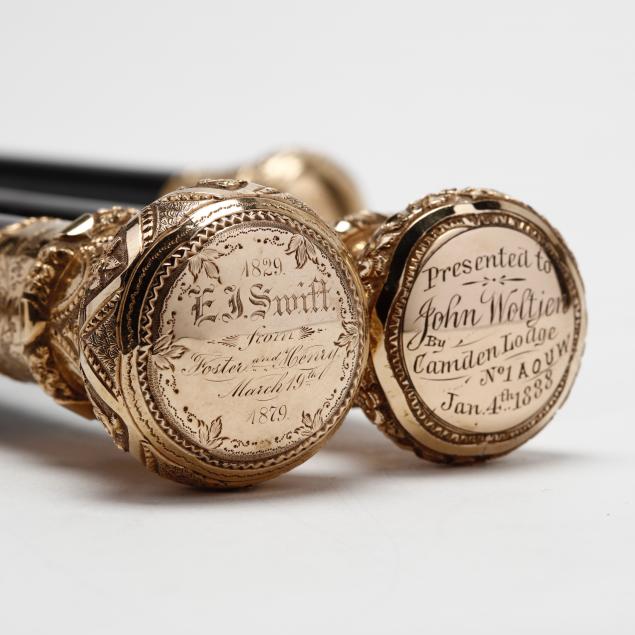 1829.
E.J. Swift
from
Foster and Henry
March 19th
1879.
Presented to
John Woltjen
By
Camden Lodge
No 1 A O U W
Jan. 4th. 1888